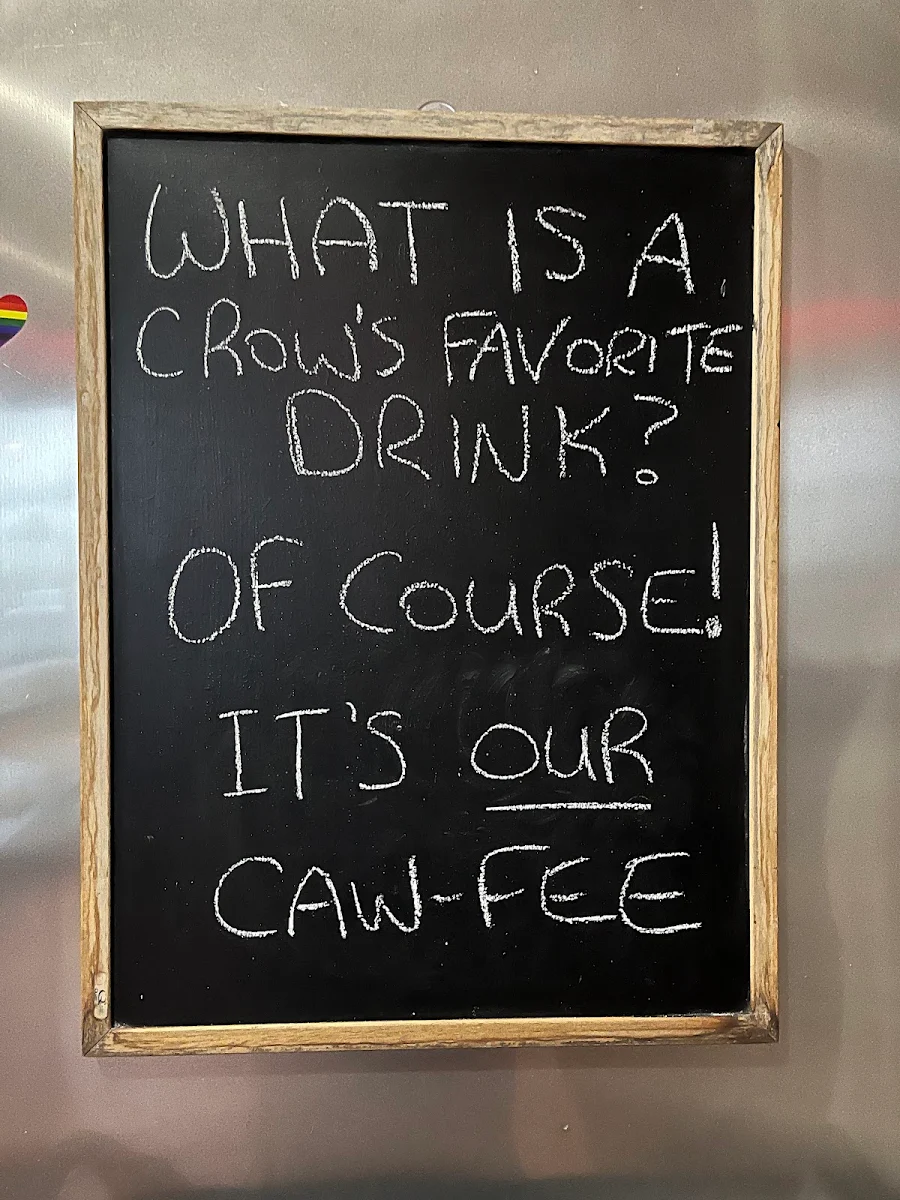 WHAT IS A
CROW'S FAVORITE
DRINK?
OF COURSE!
IT'S OUR
CAW-FEE